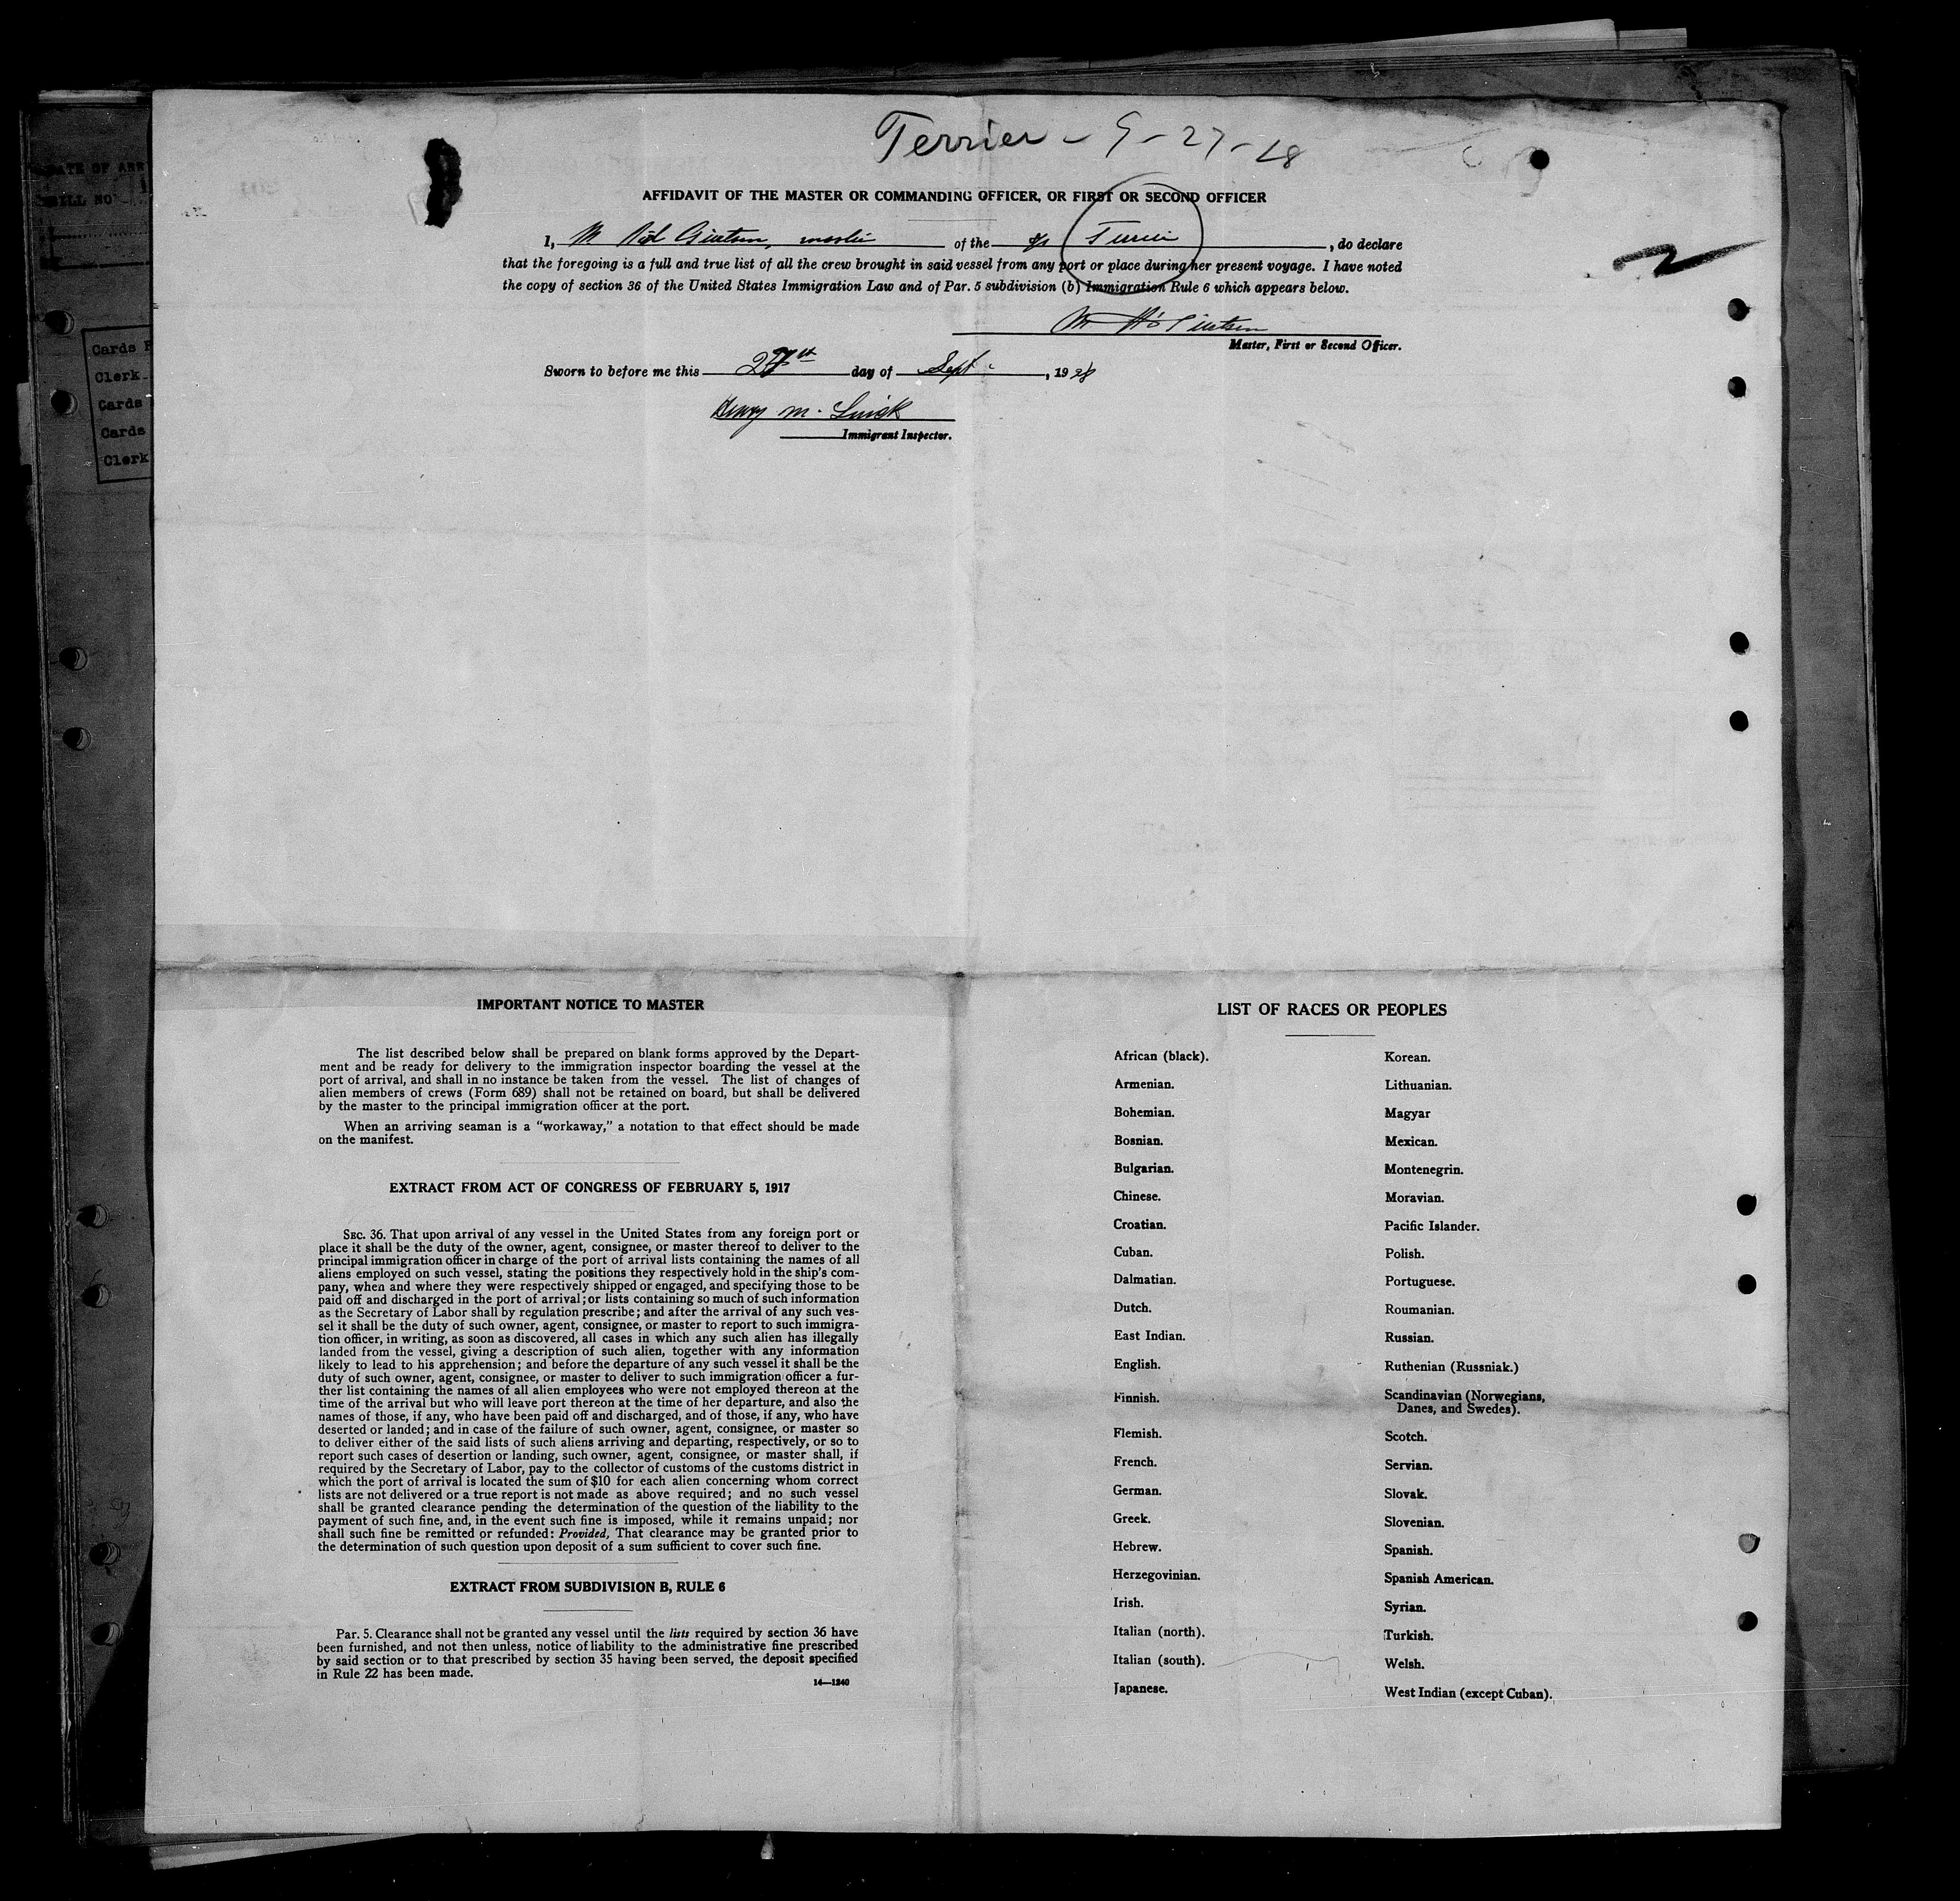 Terrier - 9-27-28
DATE OF ARR
BILL NO
Cards
Clerk
Cards
Cards
Clerk
AFFIDAVIT OF THE MASTER OR COMMANDING OFFICER, OR FIRST OR SECOND OFFICER
I, M , master of the S/S Terrier , do declare
that the foregoing is a full and true list of all the crew brought in said vessel from any port or place during her present voyage. I have noted
the copy of section 36 of the United States Immigration Law and of Par. 5 subdivision (b) Immigration Rule 6 which appears below.
Master, First or Second Officer.
Sworn to before me this 27th day of Sept. , 1928
Henry M.
Immigrant Inspector.
2
IMPORTANT NOTICE TO MASTER
The list described below shall be prepared on blank forms approved by the Depart-
ment and be ready for delivery to the immigration inspector boarding the vessel at the
port of arrival, and shall in no instance be taken from the vessel. The list of changes of
alien members of crews (Form 689) shall not be retained on board, but shall be delivered
by the master to the principal immigration officer at the port.
When an arriving seaman is a “workaway,” a notation to that effect should be made
on the manifest.
EXTRACT FROM ACT OF CONGRESS OF FEBRUARY 5, 1917
SEC. 36. That upon arrival of any vessel in the United States from any foreign port or
place it shall be the duty of the owner, agent, consignee, or master thereof to deliver to the
principal immigration officer in charge of the port of arrival lists containing the names of all
aliens employed on such vessel, stating the positions they respectively hold in the ship's com-
pany, when and where they were respectively shipped or engaged, and specifying those to be
paid off and discharged in the port of arrival; or lists containing so much of such information
as the Secretary of Labor shall by regulation prescribe; and after the arrival of any such ves-
sel it shall be the duty of such owner, agent, consignee, or master to report to such immigra-
tion officer, in writing, as soon as discovered, all cases in which any such alien has illegally
landed from the vessel, giving a description of such alien, together with any information
likely to lead to his apprehension; and before the departure of any such vessel it shall be the
duty of such owner, agent, consignee, or master to deliver to such immigration officer a fur-
ther list containing the names of all alien employees who were not employed thereon at the
time of the arrival but who will leave port thereon at the time of her departure, and also the
names of those, if any, who have been paid off and discharged, and of those, if any, who have
deserted or landed; and in case of the failure of such owner, agent, consignee, or master so
to deliver either of the said lists of such aliens arriving and departing, respectively, or so to
report such cases of desertion or landing, such owner, agent, consignee, or master shall, if
required by the Secretary of Labor, pay to the collector of customs of the customs district in
which the port of arrival is located the sum of $10 for each alien concerning whom correct
lists are not delivered or a true report is not made as above required; and no such vessel
shall be granted clearance pending the determination of the question of the liability to the
payment of such fine, and, in the event such fine is imposed, while it remains unpaid; nor
shall such fine be remitted or refunded: Provided, That clearance may be granted prior to
the determination of such question upon deposit of a sum sufficient to cover such fine.
EXTRACT FROM SUBDIVISION B, RULE 6
Par. 5. Clearance shall not be granted any vessel until the lists required by section 36 have
been furnished, and not then unless, notice of liability to the administrative fine prescribed
by said section or to that prescribed by section 35 having been served, the deposit specified
in Rule 22 has been made.
14—1240
LIST OF RACES OR PEOPLES
African (black).
Armenian.
Bohemian.
Bosnian.
Bulgarian.
Chinese.
Croatian.
Cuban.
Dalmatian.
Dutch.
East Indian.
English.
Finnish.
Flemish.
French.
German.
Greek.
Hebrew.
Herzegovinian.
Irish.
Italian (north).
Italian (south).
Japanese.
Korean.
Lithuanian.
Magyar
Mexican.
Montenegrin.
Moravian.
Pacific Islander.
Polish.
Portuguese.
Roumanian.
Russian.
Ruthenian (Russniak.)
Scandinavian (Norwegians,
Danes, and Swedes).
Scotch.
Servian.
Slovak.
Slovenian.
Spanish.
Spanish American.
Syrian.
Turkish.
Welsh.
West Indian (except Cuban).